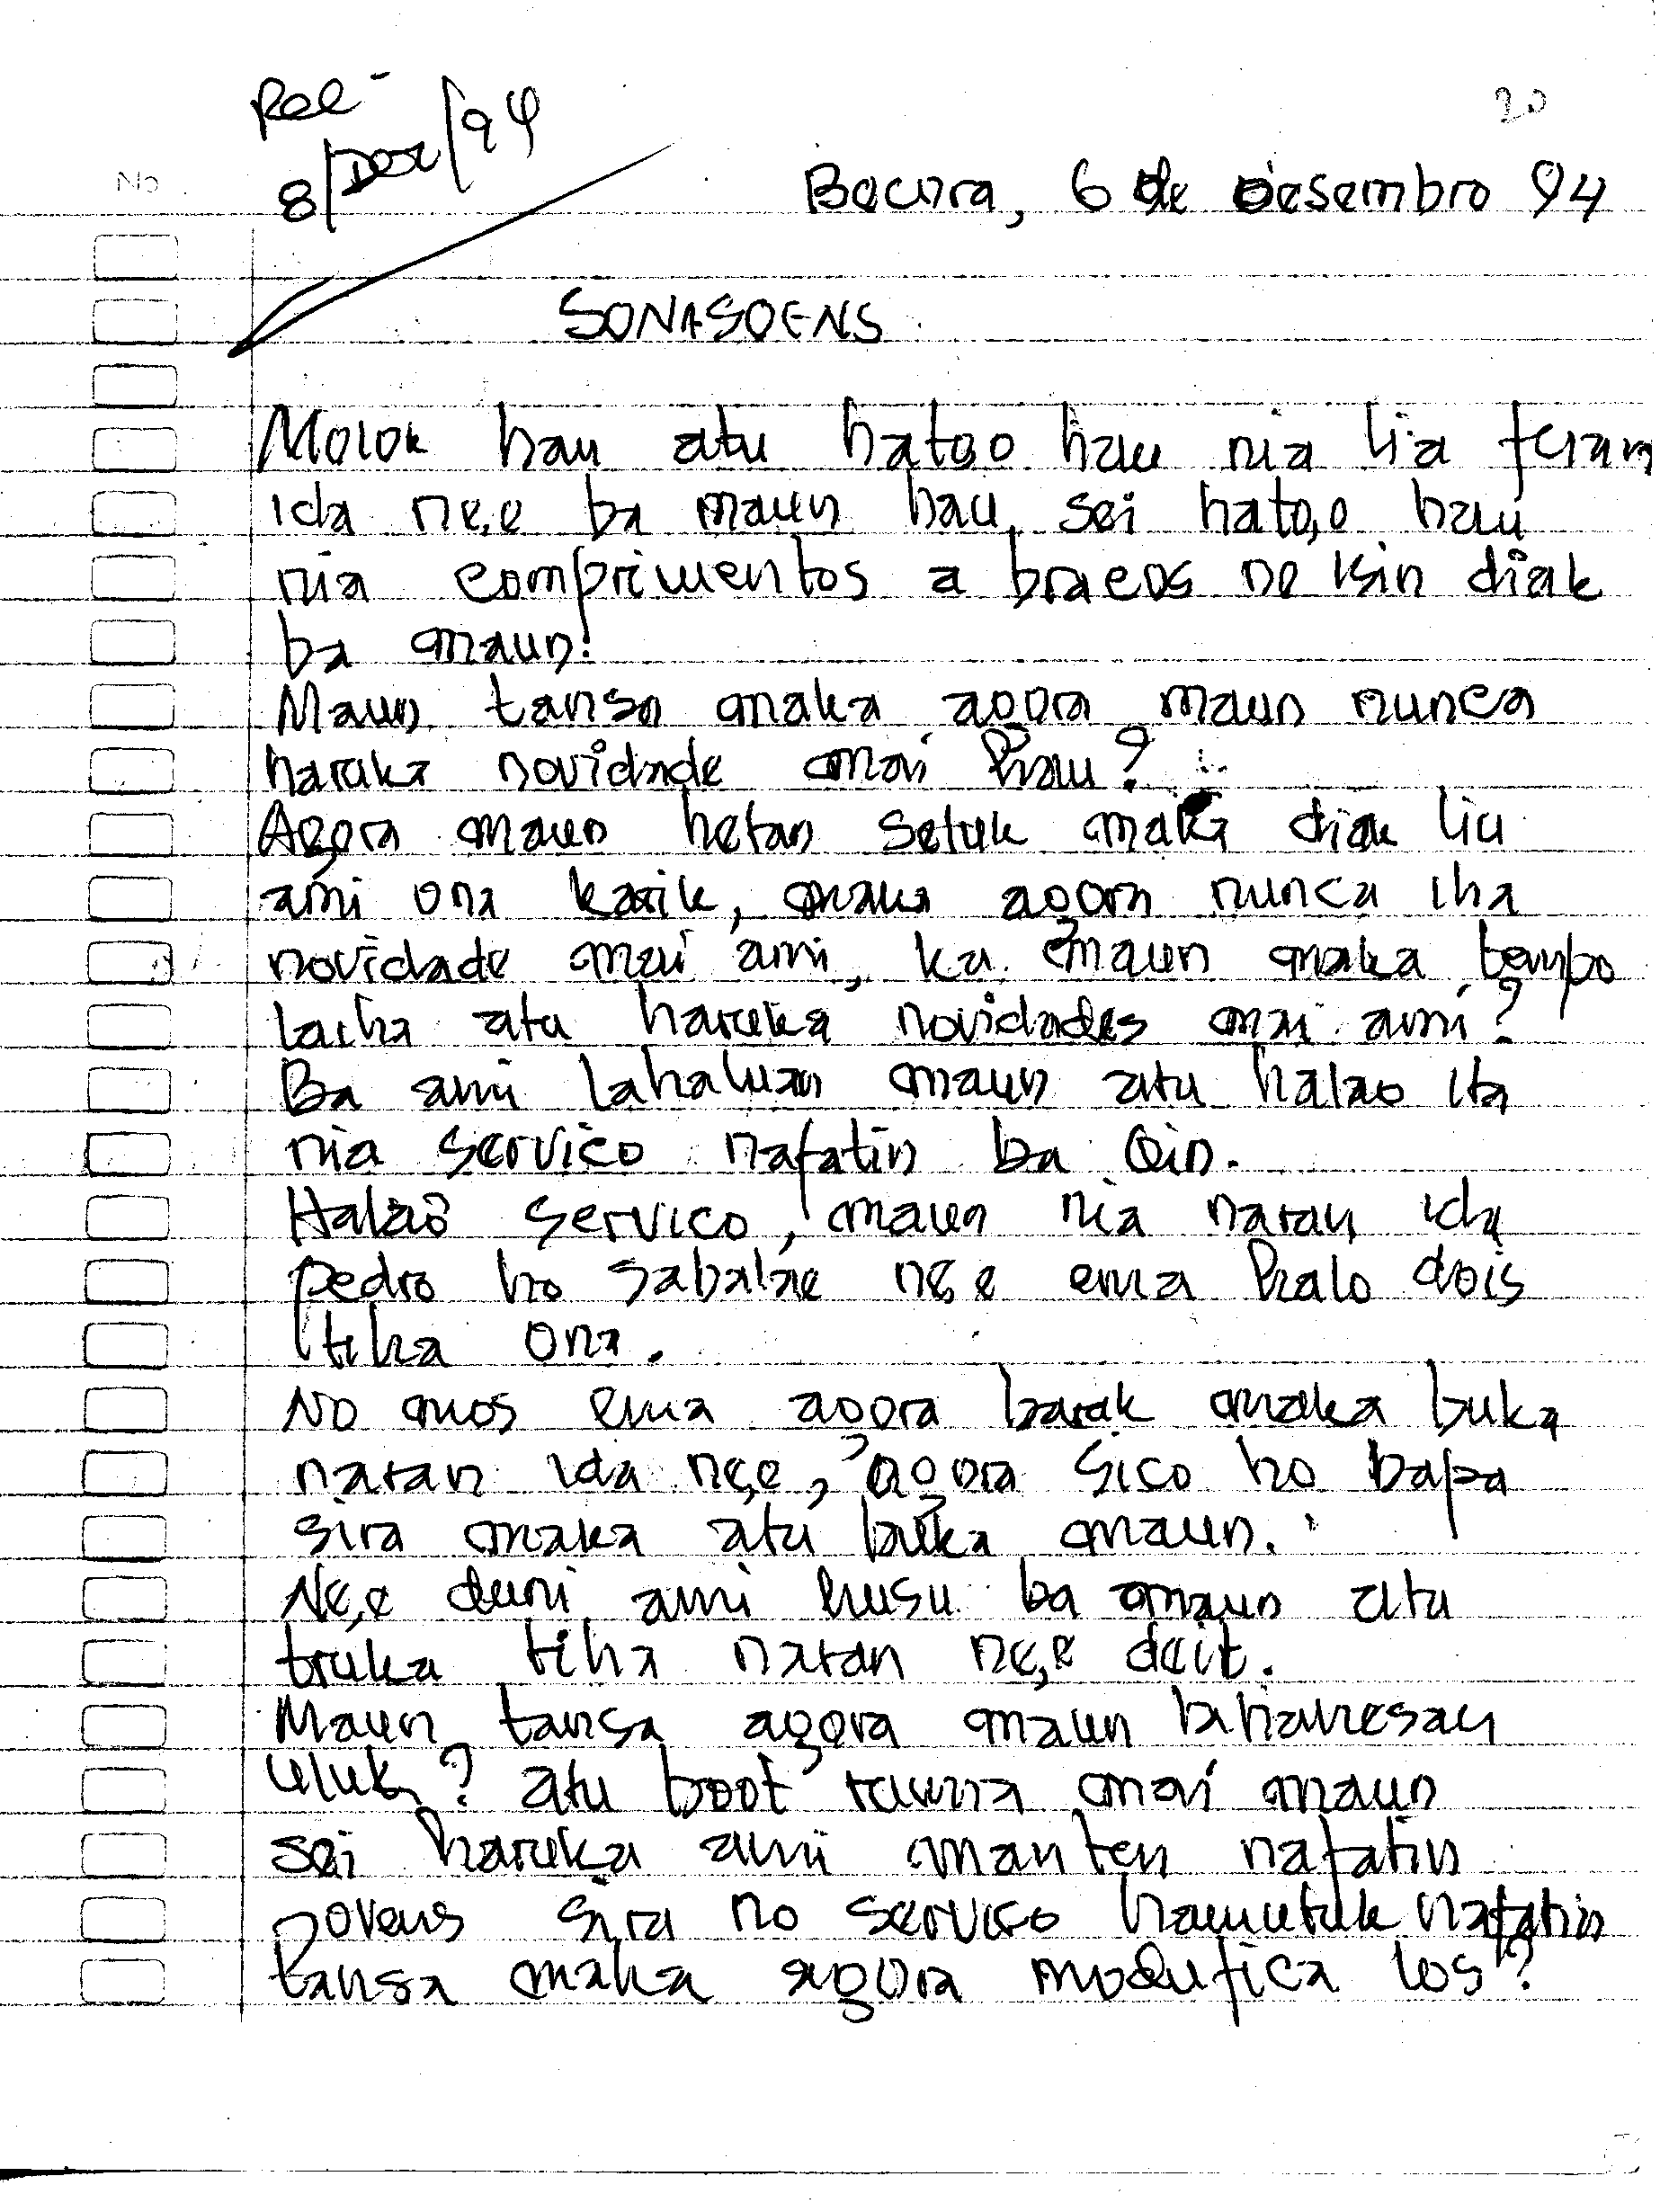 Rec-
8/Dez/94
20
No
Becora, 6 de Desembro 94
SONASOENS
Molok hau atu hatoo hau nia lia fuan
ida ne,e ba maun hau, sei hato,o hau
nia comprimentos a bracos no isin diak
ba maun.
Maun tansa maka agora maun nunca
haruka novidade mai hau?
Agora maun hetan setuk maka diak liu
ami ona karik, maka agora nunca iha
novidade mai ami, ka maun maka tempo
laiha atu haruka novidades mai ami?
Ba ami lahaluan maun atu halao ita
nia servico nafatin ba oin.
Halao servico, maun nia naran ida
Pedro ho Sabalae ne,e ema halo dois
tiha ona.
No mos ema agora barak maka buka
naran ida ne,e, agora Sico ho bapa
sira maka atu buka maun.
Ne,e duni ami husu ba maun atu
truka tiha naran ne,e deit.
Maun tansa agora maun
uluk? atu boot ruma mai maun
sei haruka ami manten nafatin
jovens sira no serviso hamutuk nafatin
tansa maka agora modufica los?